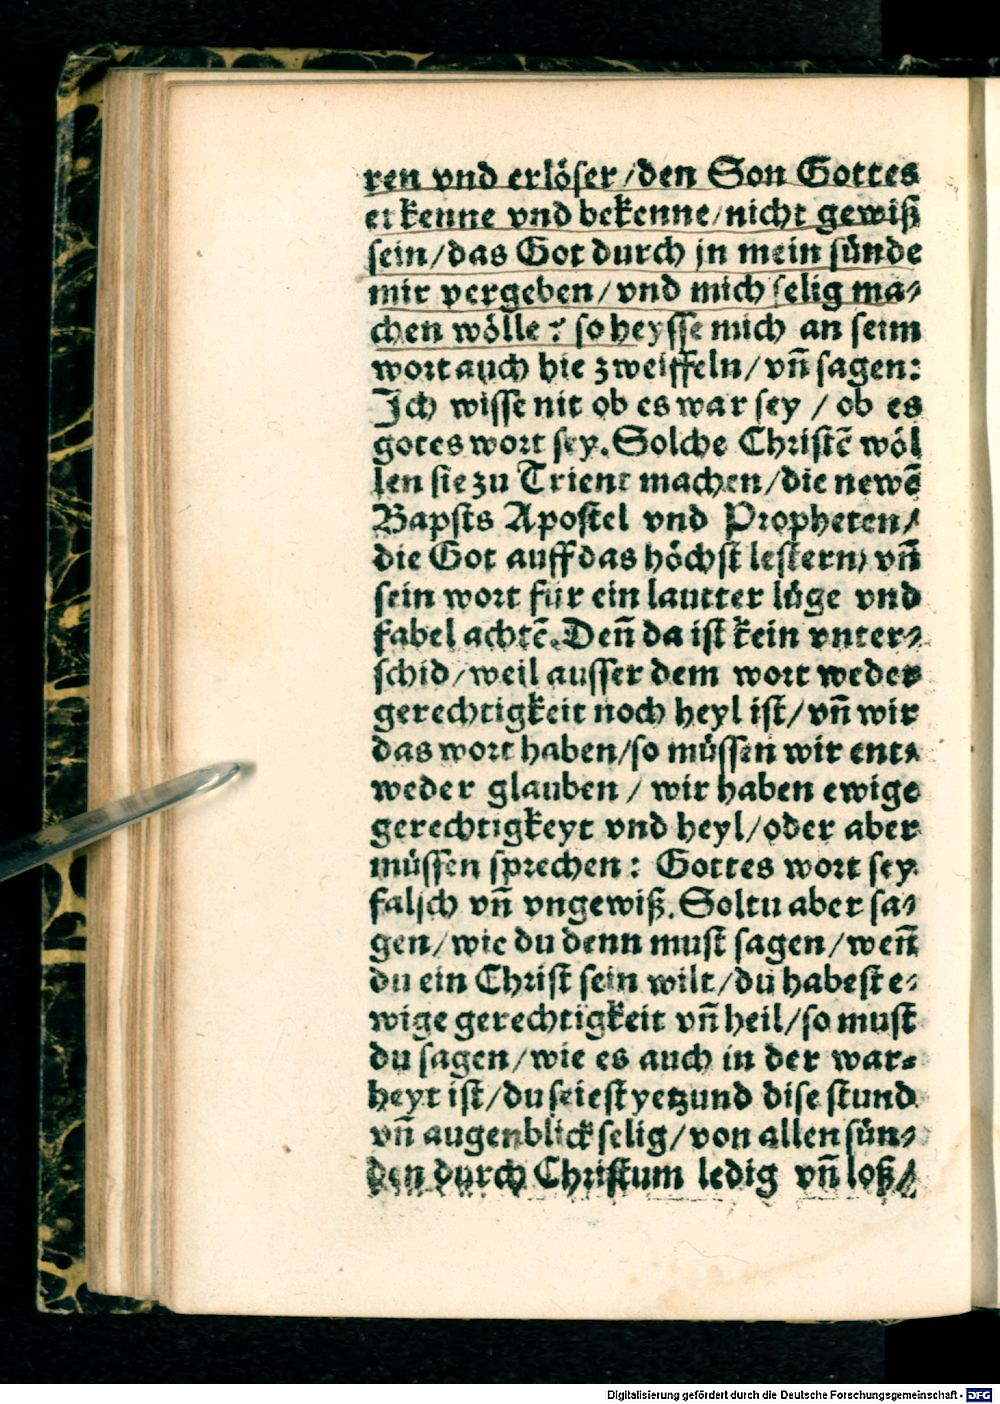 ren vnd erlöser/den Son Gottes
erkenne vnd bekenne/nicht gewiß
sein/das Got durch jn mein sünde
mir vergeben/vnd mich selig ma⸗
chen wölle: so heysse mich an seim
wort auch hie zweiffeln/vñ sagen:
Ich wisse nit ob es war sey / ob es
gotes wort sey. Solche Christẽ wöl
len sie zu Trient machen/die newẽ
Bapsts Apostel vnd Propheten/
die Got auff das höchst lestern/ vñ
sein wort für ein lautter lüge vnd
fabel achtẽ. Deñ da ist kein vnter⸗
schid/weil ausser dem wort weder
gerechtigkeit noch heyl ist/vñ wir
das wort haben/so müssen wir ent⸗
weder glauben / wir haben ewige
gerechtigkeyt vnd heyl/oder aber
müssen sprechen: Gottes wort sey
falsch vñ vngewiß. Soltu aber sa⸗
gen/wie du denn must sagen/weñ
du ein Christ sein wilt/du habest e⸗
wige gerechtigkeit vñ heil/so must
du sagen/wie es auch in der war⸗
heyt ist/du seiest yetzund dise stund
vñ augenblick selig/von allen sün⸗
den durch Christum ledig vñ loß/
Digitalisierung gefördert durch die Deutsche Forschungsgemeinschaft - DFG